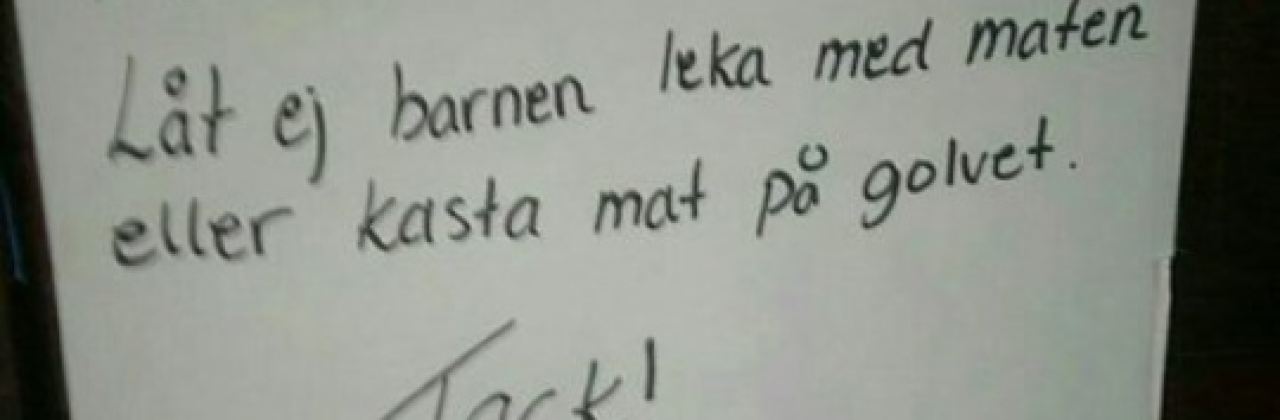 Låt ej barnen leka med maten
eller kasta mat på golvet.
Tack!